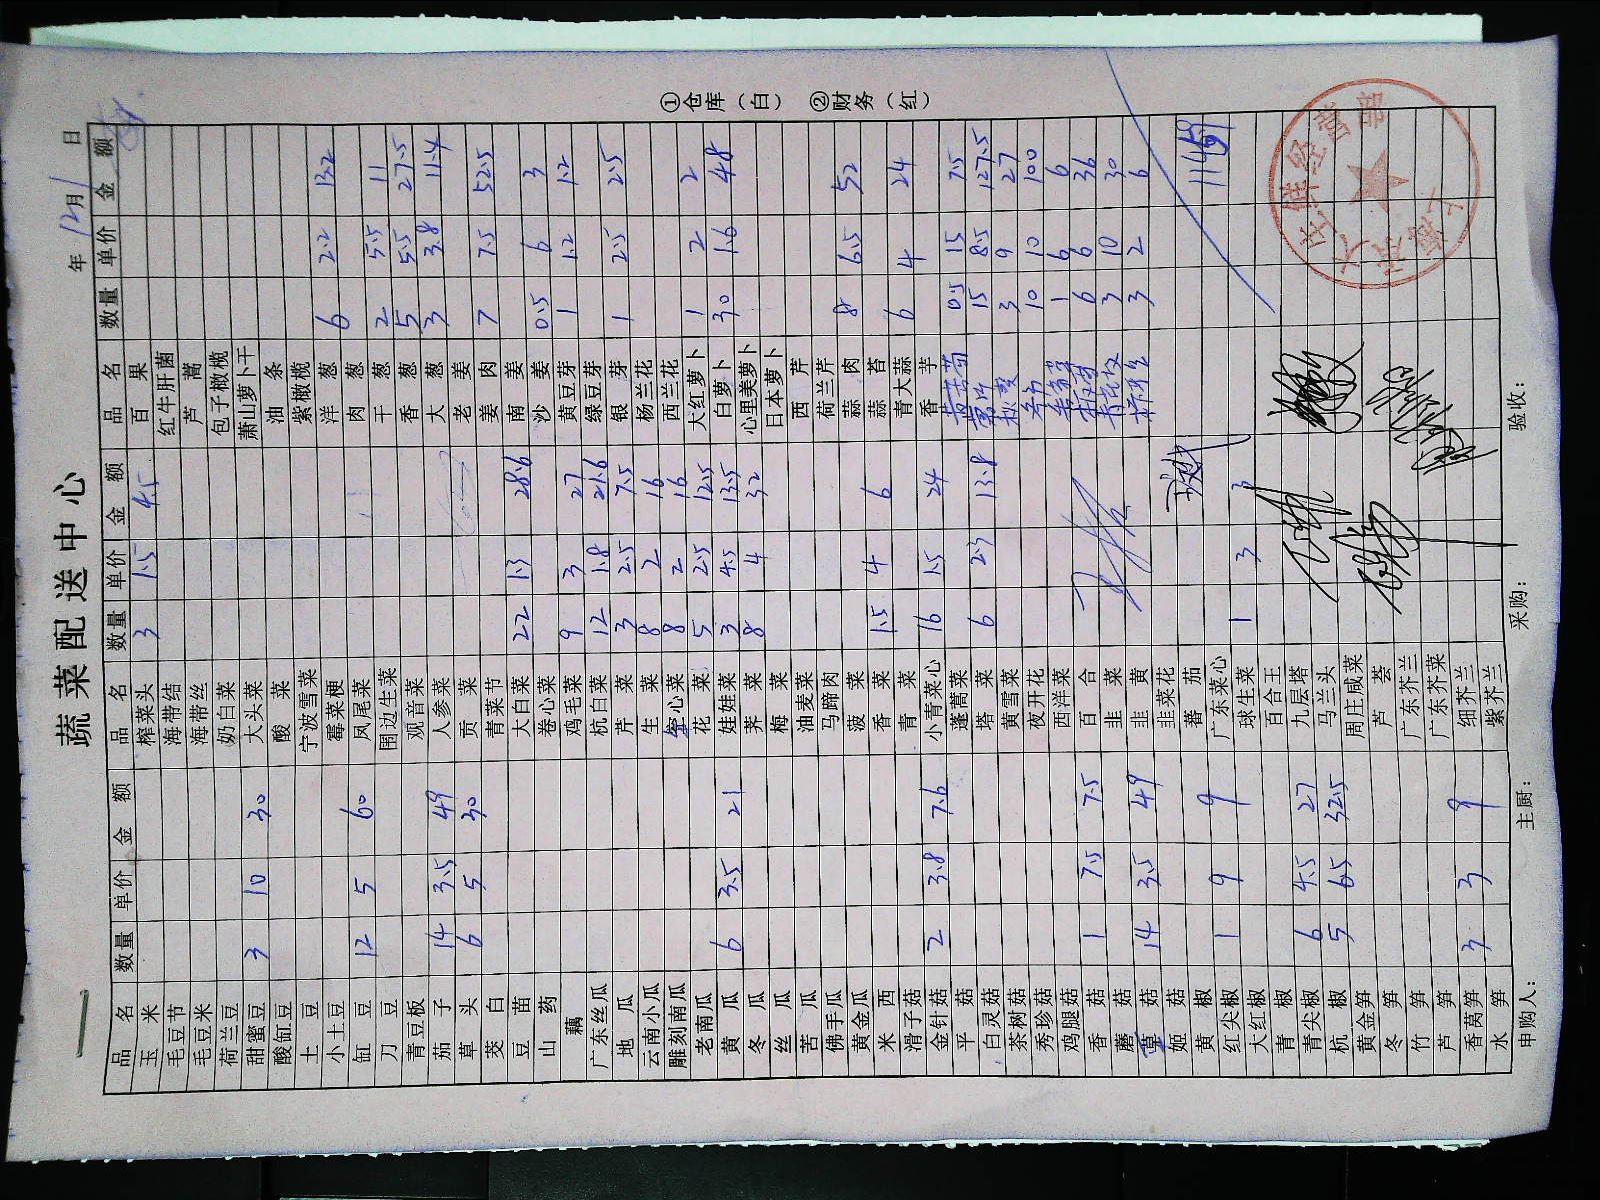 蔬菜配送中心
年 12月 1 日
品名 数量 单价 金额 品名 数量 单价 金额 品名 数量 单价 金额
玉米 榨菜头 3 1.5 4.5 百果
毛豆节 海带结 红牛肝菌
毛豆米 海带丝 芦蒿
荷兰豆 奶白菜 包子橄榄
甜蜜豆 3 10 30 大头菜 萧山萝卜干
酸缸豆 酸菜 油条
土豆 宁波雪菜 紫橄榄
小土豆 霉菜梗 洋葱 6 2.2 13.2
缸豆 12 5 60 凤尾菜 肉葱
刀豆 围边生菜 干葱 2 5.5 11
青豆板 观音菜 香葱 5 5.5 27.5
茄子 14 3.5 49 人参菜 大葱 3 3.8 11.4
草头 6 5 30 贡菜 老姜
茭白 青菜节 姜肉 7 7.5 52.5
豆苗 大白菜 22 1.3 28.6 南姜
山药 卷心菜 沙姜 0.5 6 3
藕 鸡毛菜 9 3 27 黄豆芽 1 1.2 1.2
广东丝瓜 杭白菜 12 1.8 21.6 绿豆芽
地瓜 芹菜 3 2.5 7.5 银芽 1 2.5 2.5
云南小瓜 生菜 8 2 16 杨兰花
雕刻南瓜 空心菜 8 2 16 西兰花
老南瓜 花菜 5 2.5 12.5 大红萝卜 1 2 2
黄瓜 6 3.5 21 娃娃菜 3 4.5 13.5 白萝卜 30 1.6 48
冬瓜 荠菜 8 4 32 心里美萝卜
丝瓜 梅菜 日本萝卜
苦瓜 油麦菜 西芹
佛手瓜 马蹄肉 荷兰芹
黄金瓜 菠菜 蒜肉 8 6.5 52
米西 香菜 1.5 4 6 蒜苔
滑子菇 青菜 青大蒜 6 4 24
金针菇 2 3.8 7.6 小青菜心 16 1.5 24 香芋
平菇 蓬蒿菜 0.5 15 7.5
白灵菇 塔菜 6 2.3 13.8 15 8.5 127.5
茶树菇 黄雪菜 3 9 27
秀珍菇 夜开花 10 10 100
鸡腿菇 西洋菜 1 6 6
香菇 1 7.5 7.5 百合 6 6 36
蘑菇 韭菜 3 10 30
草菇 14 3.5 49 韭黄 3 2 6
姬菇 韭菜花
黄椒 蕃茄
红尖椒 1 9 9 广东菜心
大红椒 球生菜 1 3 3
青椒 百合王
青尖椒 6 4.5 27 九层塔
杭椒 5 6.5 32.5 马兰头
黄金笋 周庄咸菜
冬笋 芦荟
竹笋 广东芥兰
芦笋 广东芥菜
香莴笋 3 3 9 细芥兰
水笋 紫芥兰
申购人： 主厨： 采购： 验收：
①仓库（白） ②财务（红）